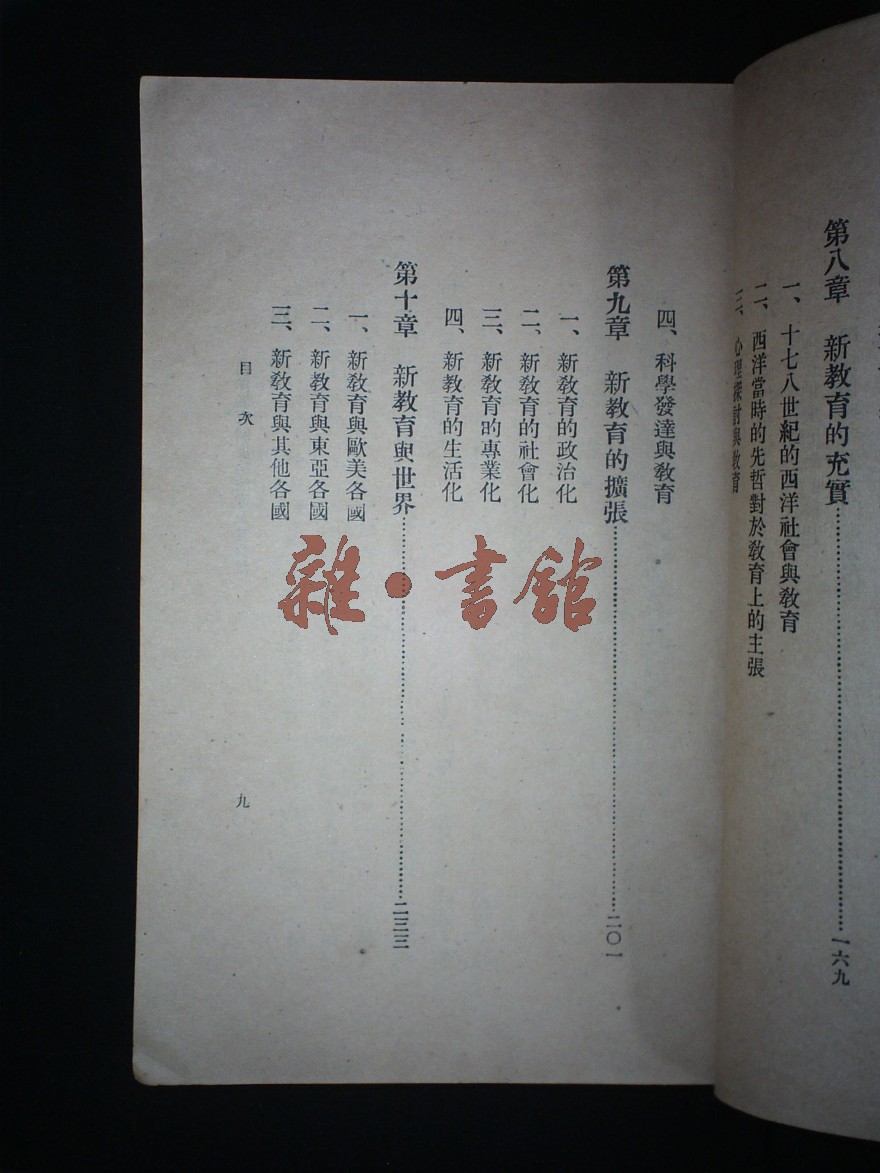 第八章　新教育的充實……一六九
一、十七八世紀的西洋社會與教育
二、西洋當時的先哲對於教育上的主張
三、心理探討與教育
四、科學發達與教育
第九章　新教育的擴張……二〇一
一、新教育的政治化
二、新教育的社會化
三、新教育的專業化
四、新教育的生活化
第十章　新教育與世界……二三三
一、新教育與歐美各國
二、新教育與東亞各國
三、新教育與其他各國
目次
九
雜·書館